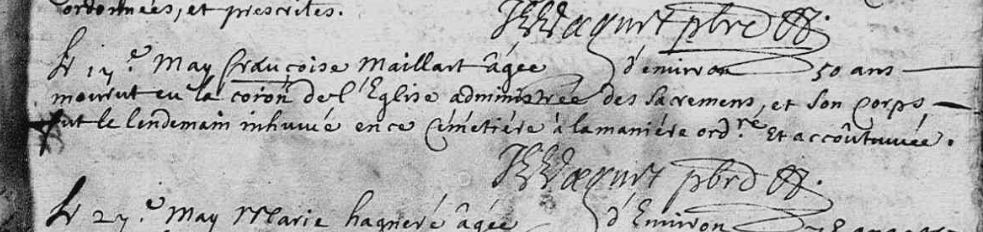 ordonnées, et prescrites.
Le 17.e May françoise Maillart âgée d'environ 50 ans
mourut en la coron de l'Eglise administrée des Sacremens, et son corps
fut le lendemain inhumé en ce Cémetiére à la maniére ordre Et accoûtumée.
Le 27.e May Marie hagneré âgée d'Environ